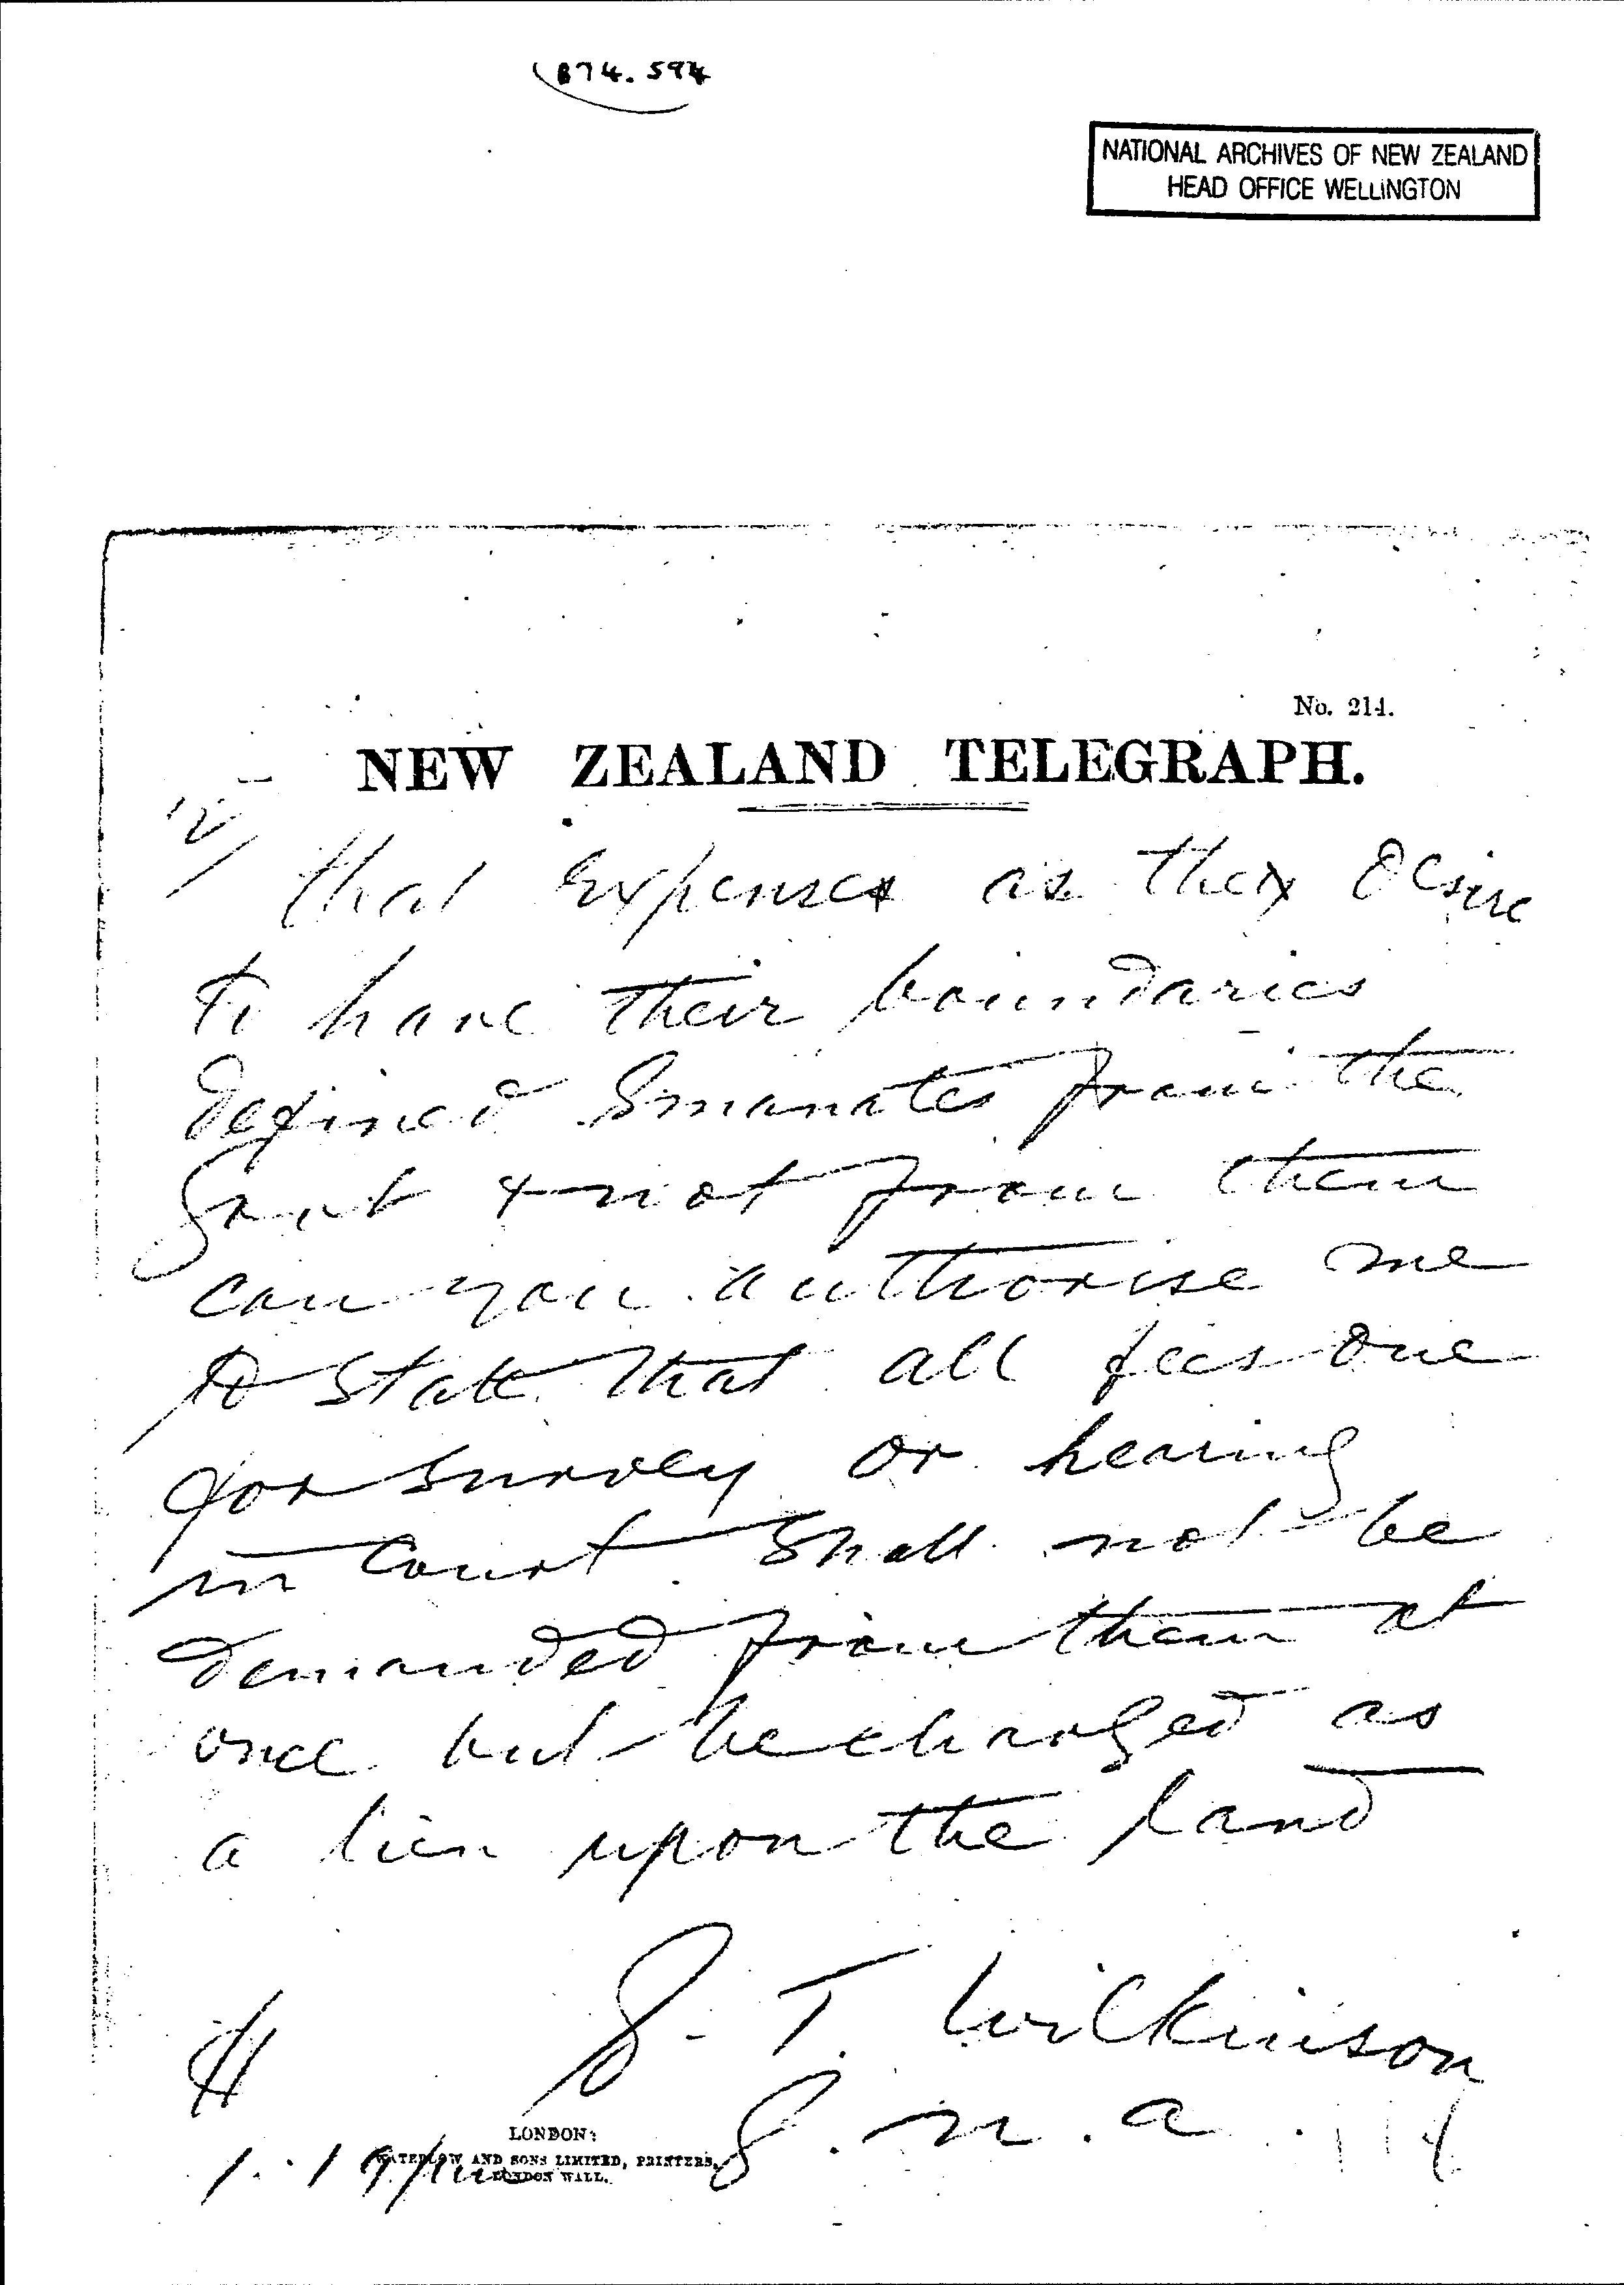 B74.594
NATIONAL ARCHIVES OF NEW ZEALAND
HEAD OFFICE WELLINGTON
No. 214.
NEW ZEALAND TELEGRAPH.
12/
that expenses as they desire
to have their boundaries
defined Emanates from the
Govt & not from them
can you authorise me
to state that all fees due
for survey or hearing
in Court shall not be
demanded from them at
once but be charged as
a lien upon the land
G. T. Wilkinson
G. N. A.
1.19pm
LONDON:
WATERLOW AND SONS LIMITED, PRINTERS,
LONDON WALL.